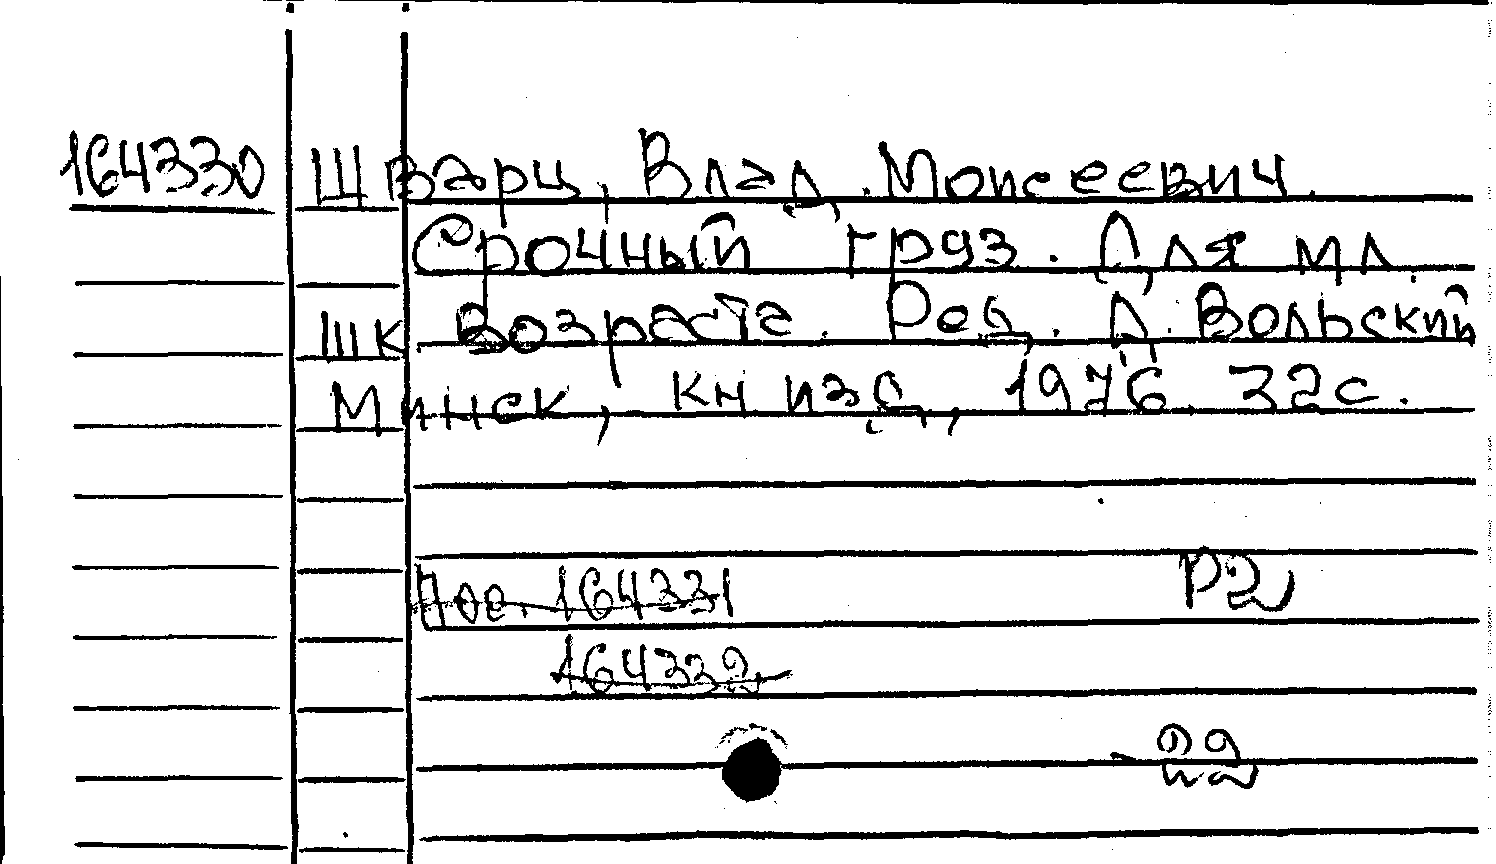 164330 Шварц, Влад. Моисеевич.
Срочный груз. Для мл.
шк возраста. Ред. Д. Вольский
Минск, кн изд, 1976. 32с.
164331 Р2
164332